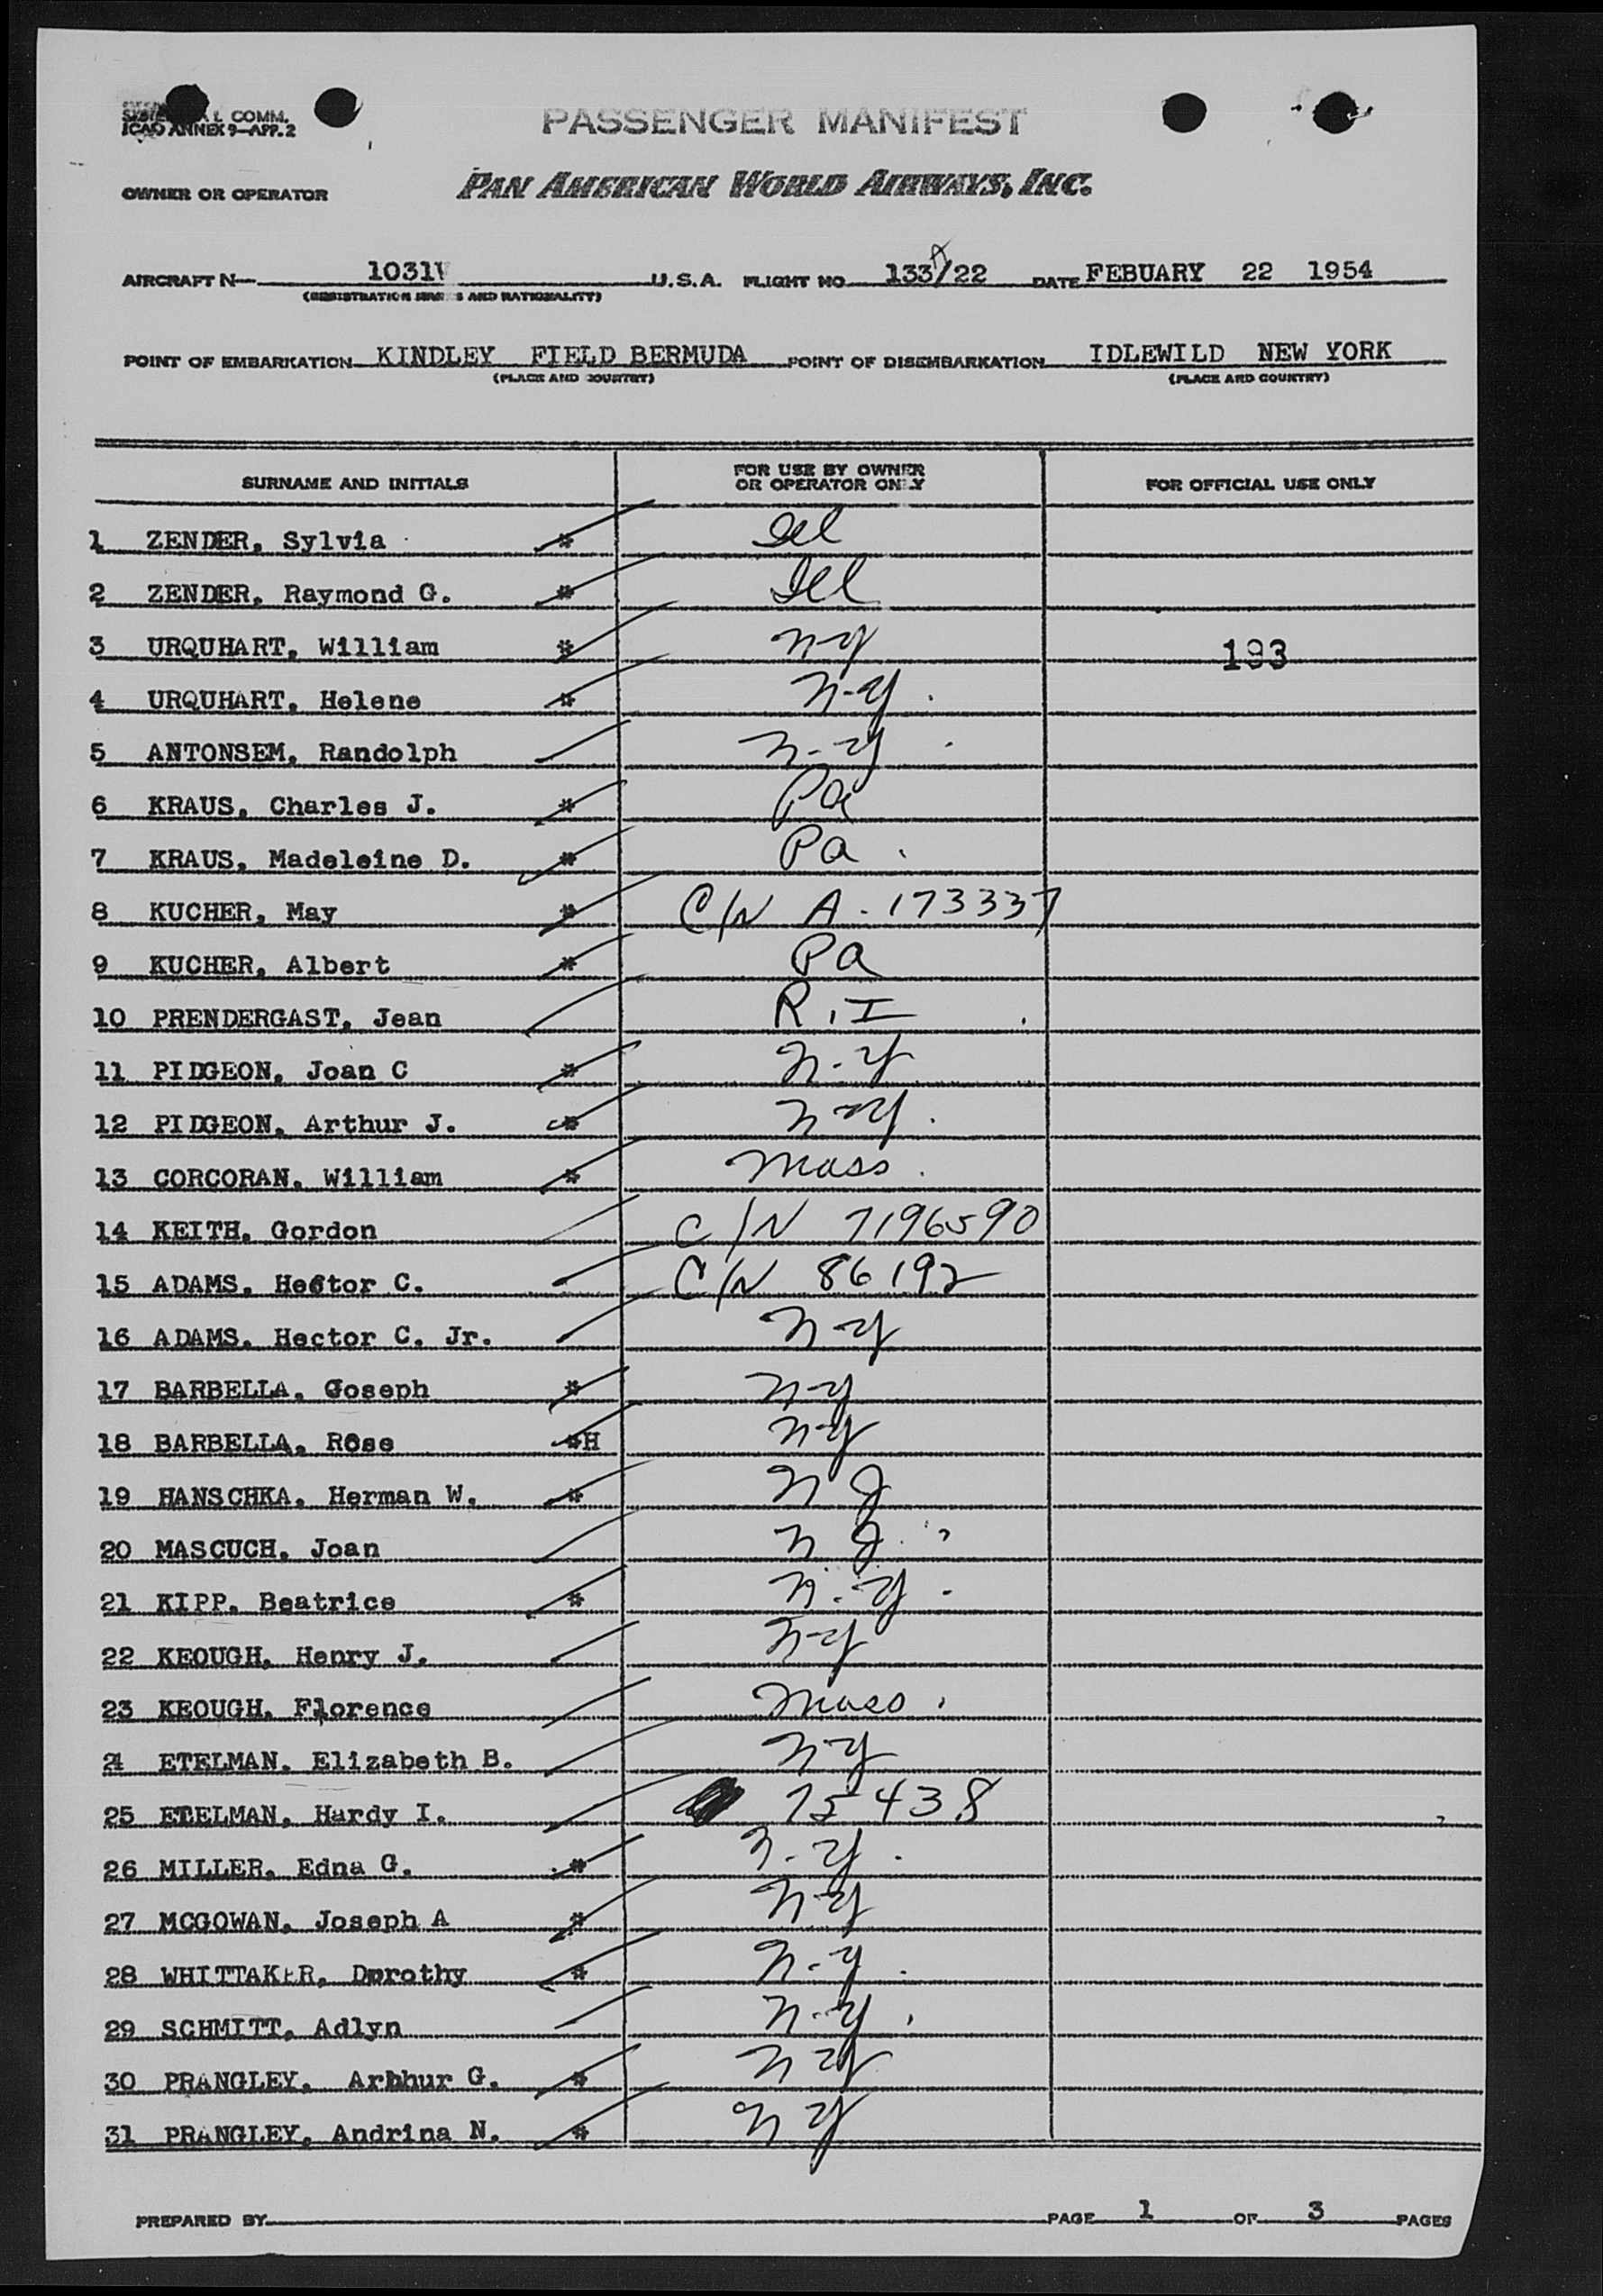 L COMM.
ICAO ANNEX 9—APP. 2
PASSENGER MANIFEST
OWNER OR OPERATOR PAN AMERICAN WORLD AIRWAYS, INC.
AIRCRAFT N— 1031V U.S.A. FLIGHT NO 133A/22 DATE FEBUARY 22 1954
(REGISTRATION MARKS AND NATIONALITY)
POINT OF EMBARKATION KINDLEY FIELD BERMUDA POINT OF DISEMBARKATION IDLEWILD NEW YORK
(PLACE AND COUNTRY) (PLACE AND COUNTRY)
SURNAME AND INITIALS FOR USE BY OWNER OR OPERATOR ONLY FOR OFFICIAL USE ONLY
1 ZENDER, Sylvia *
2 ZENDER, Raymond G. * Ill
3 URQUHART, William * N-Y 193
4 URQUHART, Helene * N-Y.
5 ANTONSEM, Randolph N-Y
6 KRAUS, Charles J. * Pa
7 KRAUS, Madeleine D. * Pa.
8 KUCHER, May * C/N A-173337
9 KUCHER, Albert * Pa
10 PRENDERGAST, Jean R.I
11 PIDGEON, Joan C * N-Y
12 PIDGEON, Arthur J. * N-Y.
13 CORCORAN, William * Mass.
14 KEITH, Gordon C/N 7196590
15 ADAMS, Hector C. C/N 86192
16 ADAMS, Hector C. Jr. N-Y
17 BARBELLA, Goseph * N-Y
18 BARBELLA, Rose *H N-Y
19 HANSCHKA, Herman W. * N J
20 MASCUCH, Joan N J
21 KIPP, Beatrice * N.-Y-
22 KEOUGH, Henry J. N-Y
23 KEOUGH, Florence Mass.
24 ETELMAN, Elizabeth B. N-Y
25 ETELMAN, Hardy I. 75438
26 MILLER, Edna G. * N-Y.
27 MCGOWAN, Joseph A * N-Y
28 WHITTAKER, Dorothy * N-Y.
29 SCHMITT, Adlyn N-Y.
30 PRANGLEY, Arhhur G. * N Y
31 PRANGLEY, Andrina N. * N Y
PREPARED BY PAGE 1 OF 3 PAGES